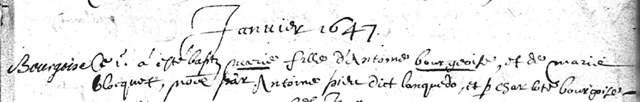 Janvier 1647.
Bourgoise Ce 1. a esté baptz marie fille d'Antoine bourgeoise, et de marie
blocquet, nommé par Antoine pieu dict Lanquedo, et p charlotte bourgoise